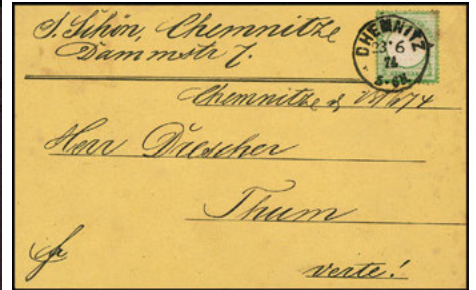 J. Schön, Chemnitz
Dammstr 7.
CHEMNITZ
23 6
74
5-6N.
Chemnitz d, 23/6 74
Herr Drescher
Thum
fr
verte!